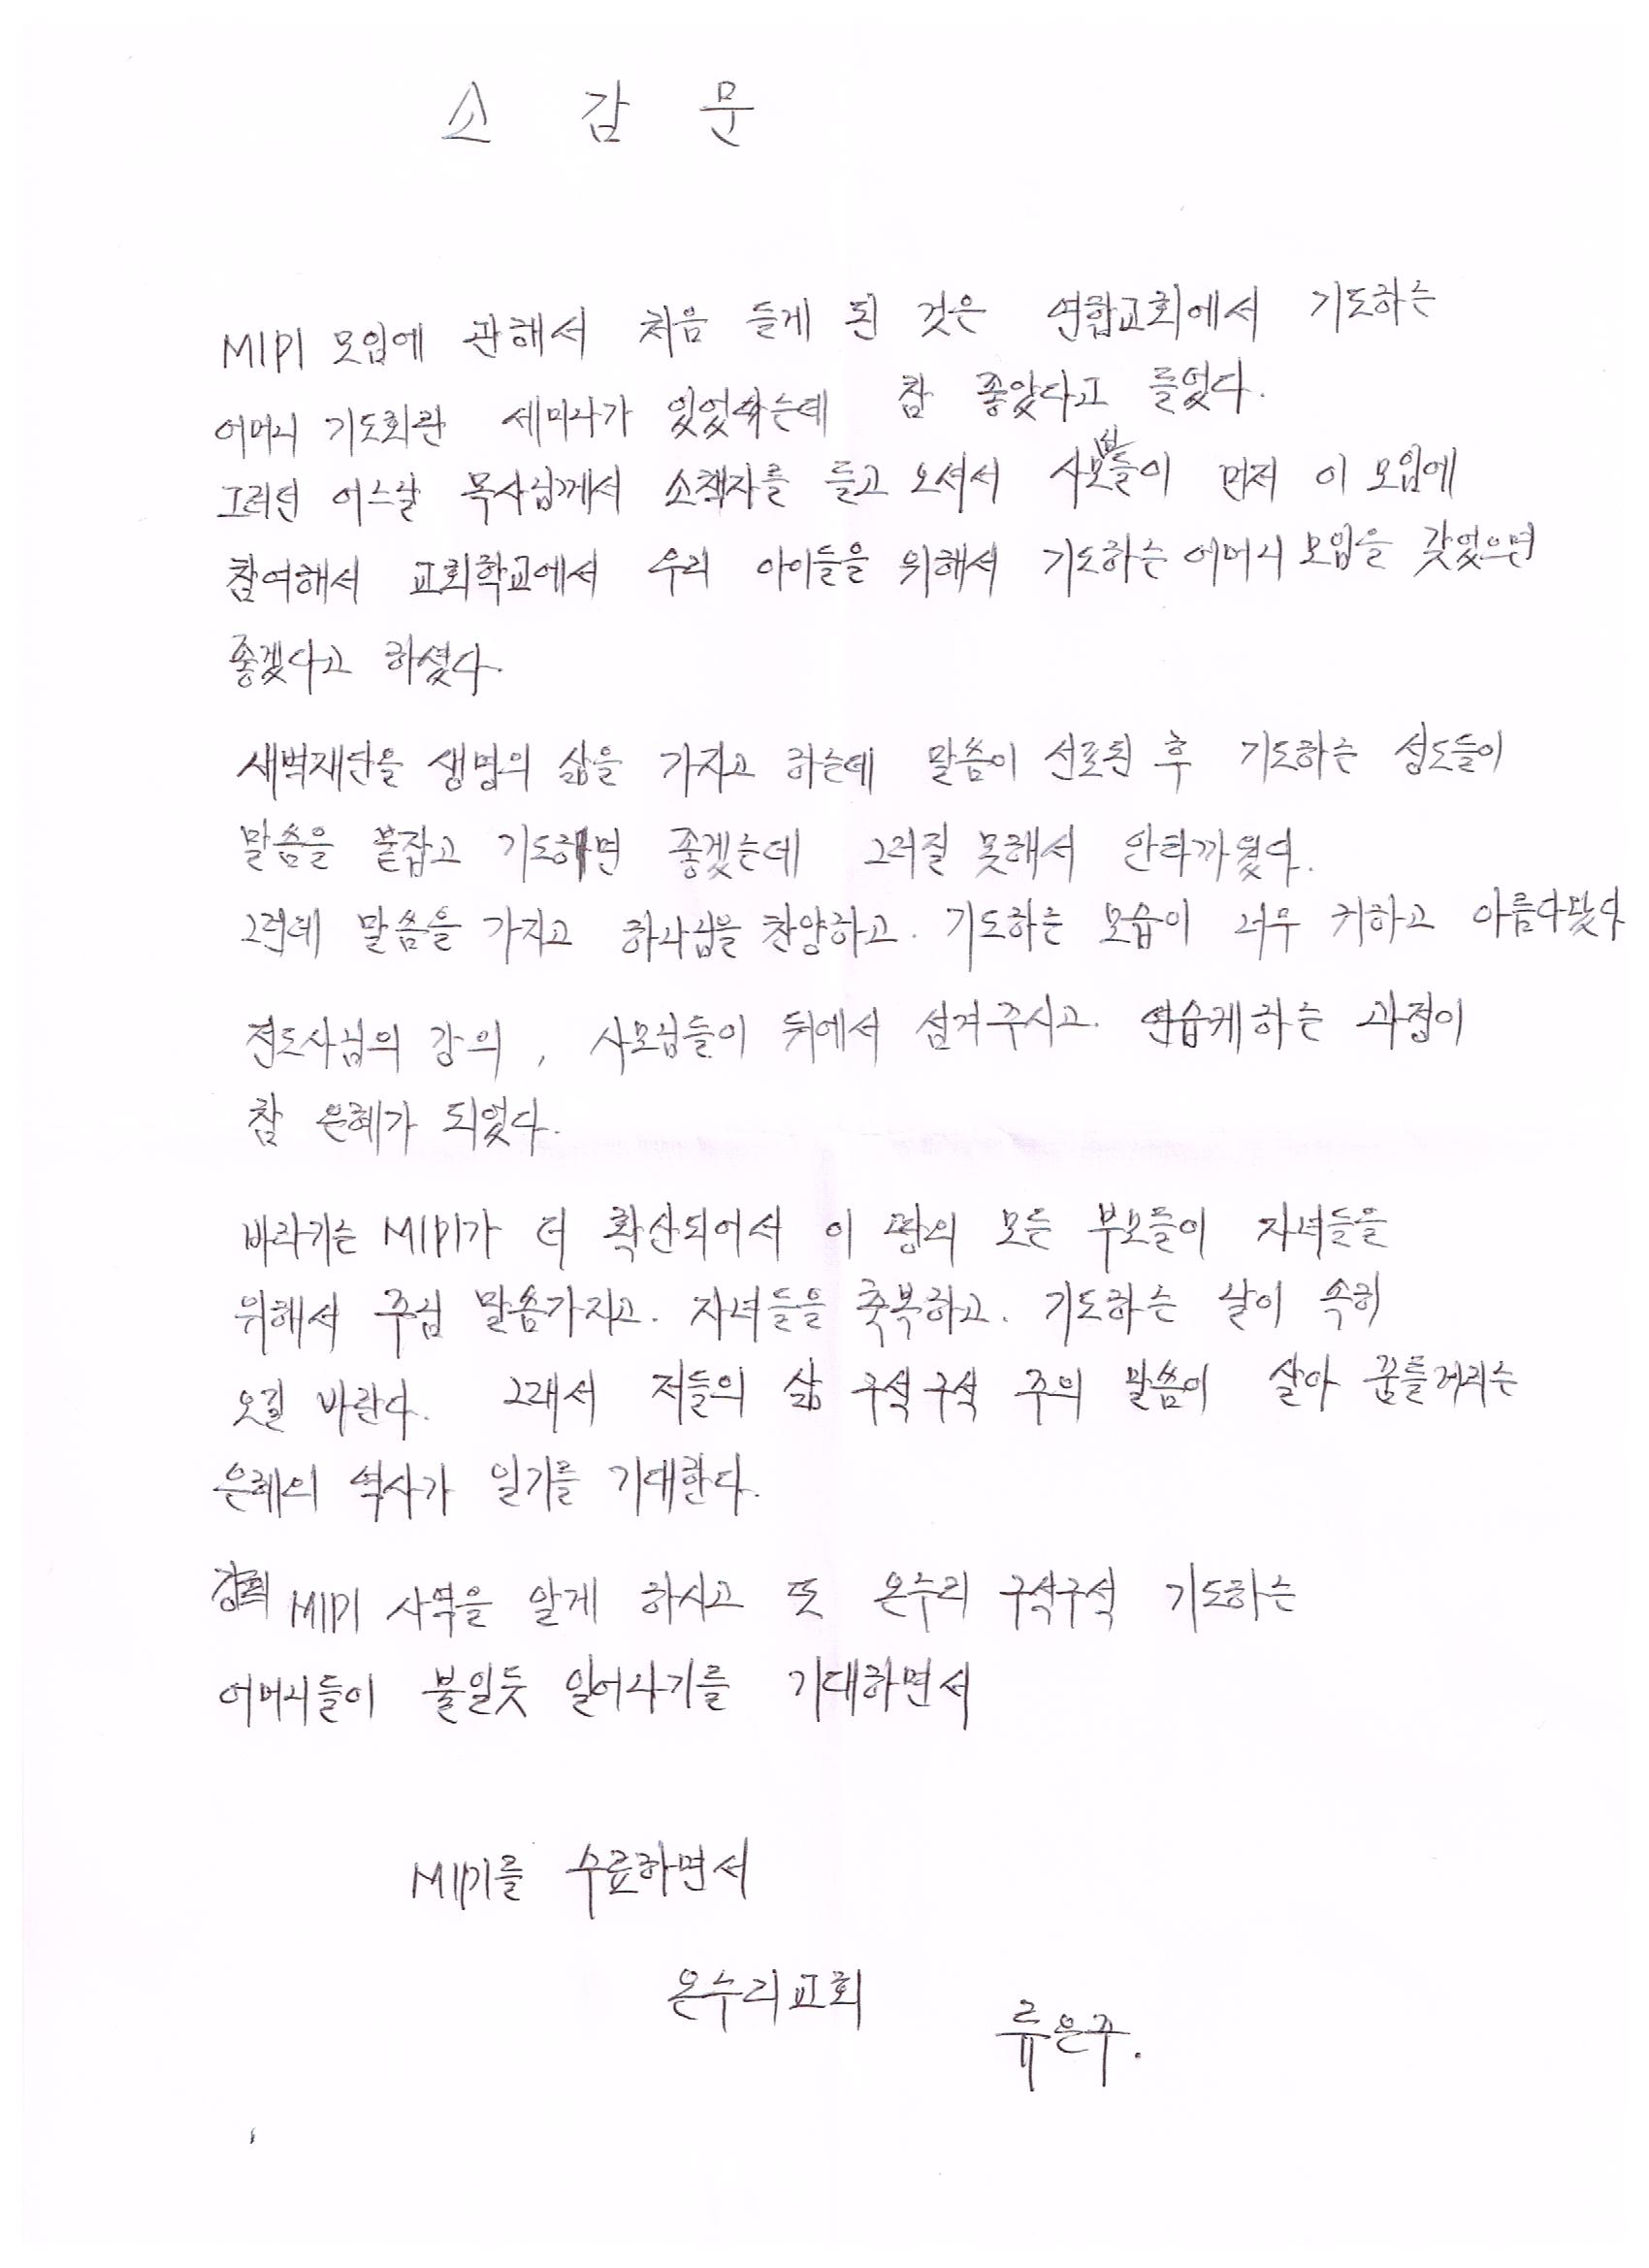 소 감 문
MIPI 모임에 관해서 처음 듣게 된 것은 연합교회에서 기도하는
어머니 기도회란 세미나가 있었는데 참 좋았다고 들었다.
그러던 어느날 목사님께서 소책자를 들고 오셔서 사모님들이 먼저 이 모임에
참여해서 교회학교에서 우리 아이들을 위해서 기도하는 어머니 모임을 갖었으면
좋겠다고 하셨다.
새벽재단을 생명의 삶을 가지고 하는데 말씀이 선포된 후 기도하는 성도들이
말씀을 붙잡고 기도하면 좋겠는데 그러질 못해서 안타까웠다.
그런데 말씀을 가지고 하나님을 찬양하고. 기도하는 모습이 너무 귀하고 아름다웠다
전도사님의 강의, 사모님들이 뒤에서 섬겨주시고. 연습케하는 과정이
참 은혜가 되었다.
바라기는 MIPI가 더 확산되어서 이 땅의 모든 부모들이 자녀들을
위해서 주님 말씀가지고. 자녀들을 축복하고. 기도하는 날이 속히
오길 바란다. 그래서 저들의 삶 구석구석 주의 말씀이 살아 꿈틀거리는
은혜의 역사가 일기를 기대한다.
MIPI 사역을 알게 하시고 또 온누리 구석구석 기도하는
어머니들이 불일듯 일어나기를 기대하면서
MIPI를 수료하면서
온누리교회
류은주.